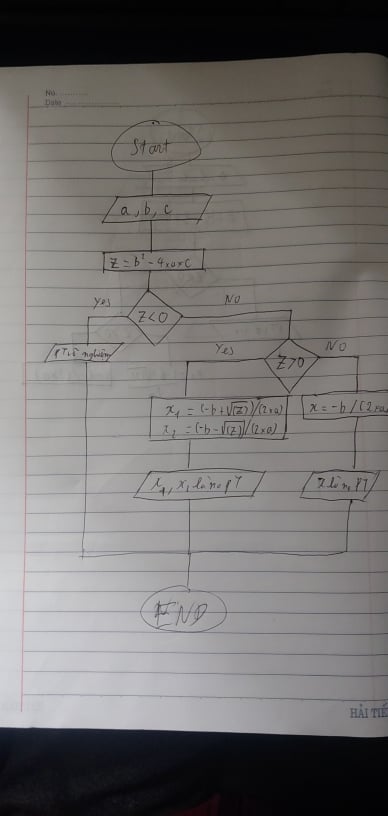 No.
Date
Start
a, b, c
Z = b² - 4×a×c
Yes
No
Z<0
PT vô nghiệm
Yes
No
Z>0
x₁ = (-b+√(Z))/(2×a)
x₂ = (-b-√(Z))/(2×a)
x = -b/(2×a
là no PT
x là no PT
END
HẢI TIẾ